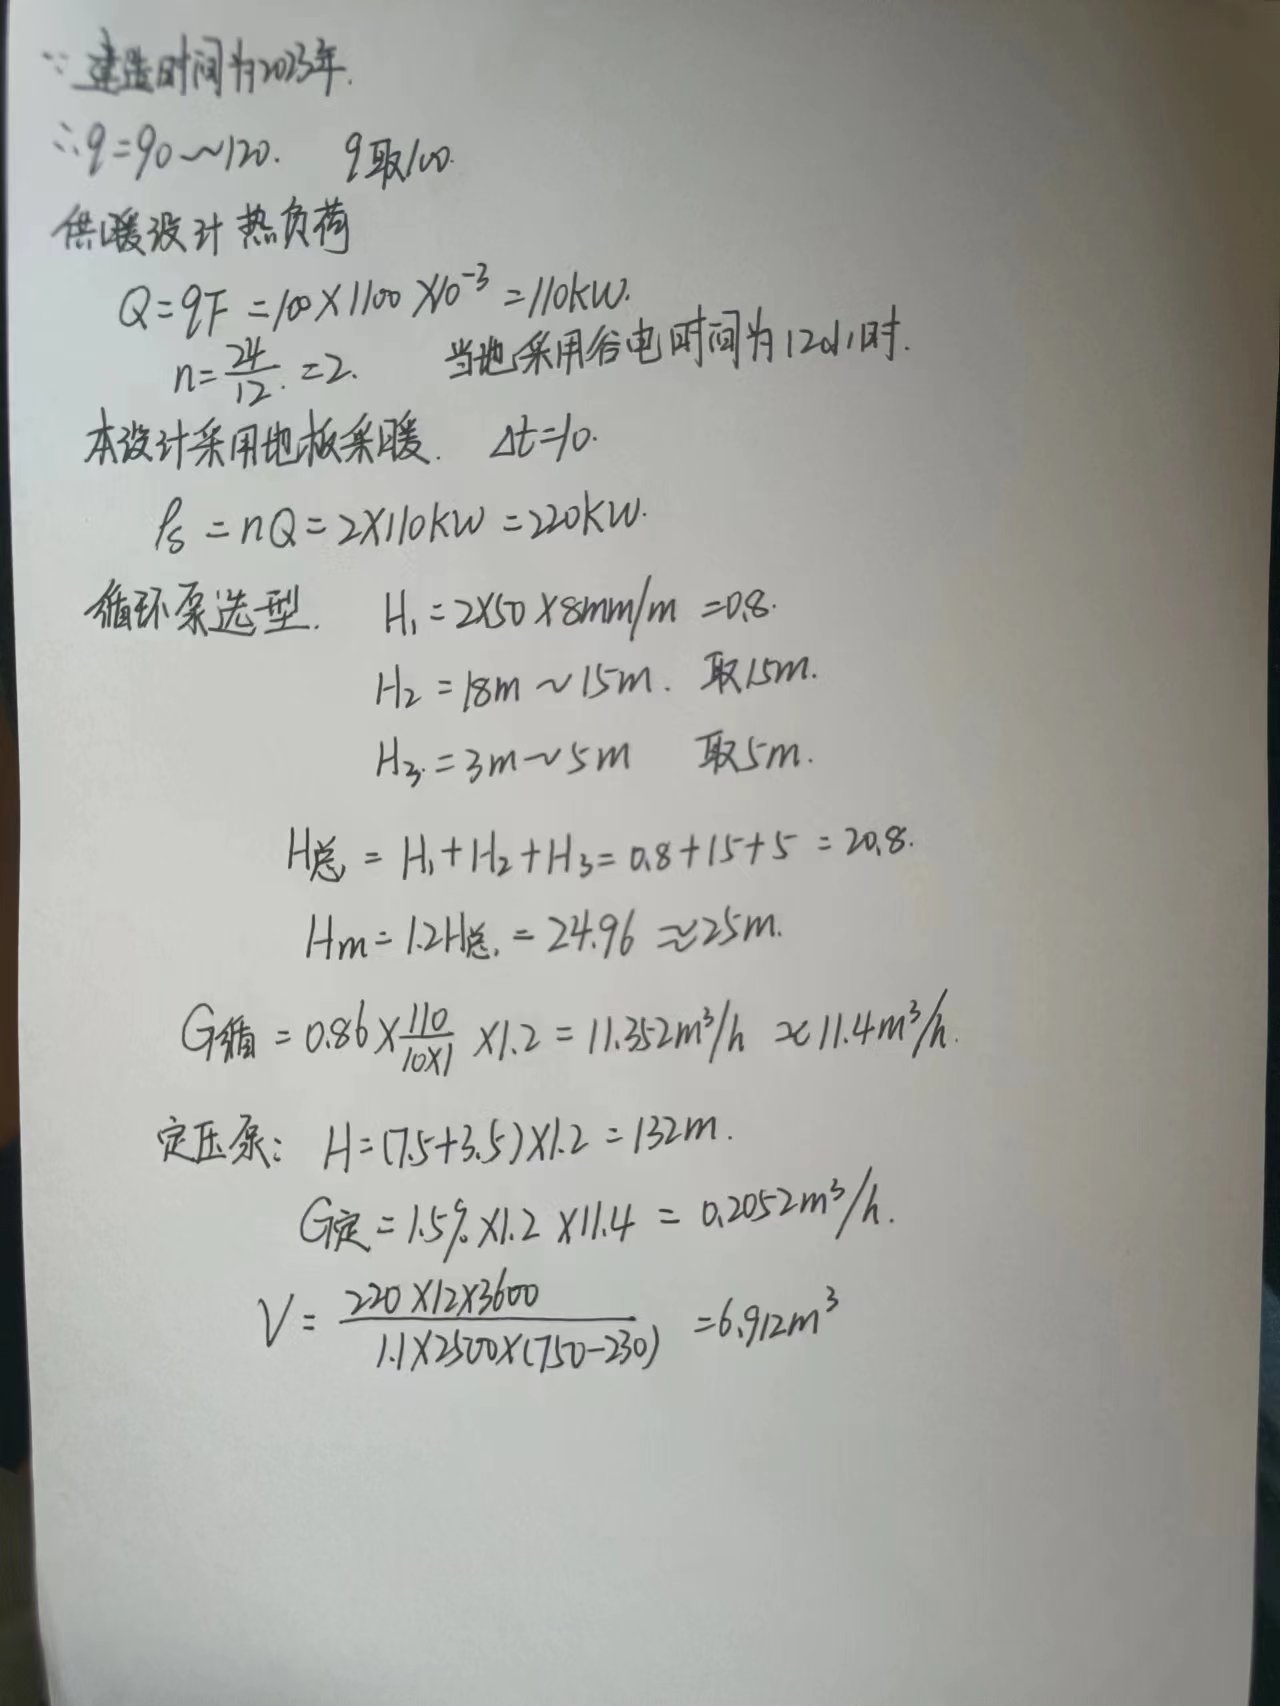 ∵建造时间为2023年.
∴q=90~120. q取100.
供暖设计热负荷
Q=qF=100×1100×10⁻³=110kW.
n=24/12.=2. 当地采用谷电时间为12小时.
本设计采用地板采暖. Δt=10.
Ps=nQ=2×110kW=220kW.
循环泵选型. H₁=2×50×8mm/m=0.8.
H₂=18m~15m. 取15m.
H₃.=3m~5m 取5m.
H总=H₁+H₂+H₃=0.8+15+5=20.8.
Hm=1.2H总.=24.96≈25m.
G循=0.86×110/10×1×1.2=11.352m³/h≈11.4m³/h.
定压泵: H=(7.5+3.5)×1.2=132m.
G定=1.5%×1.2×11.4=0.2052m³/h.
V=220×12×3600/1.1×2500×(750-230)=6.912m³